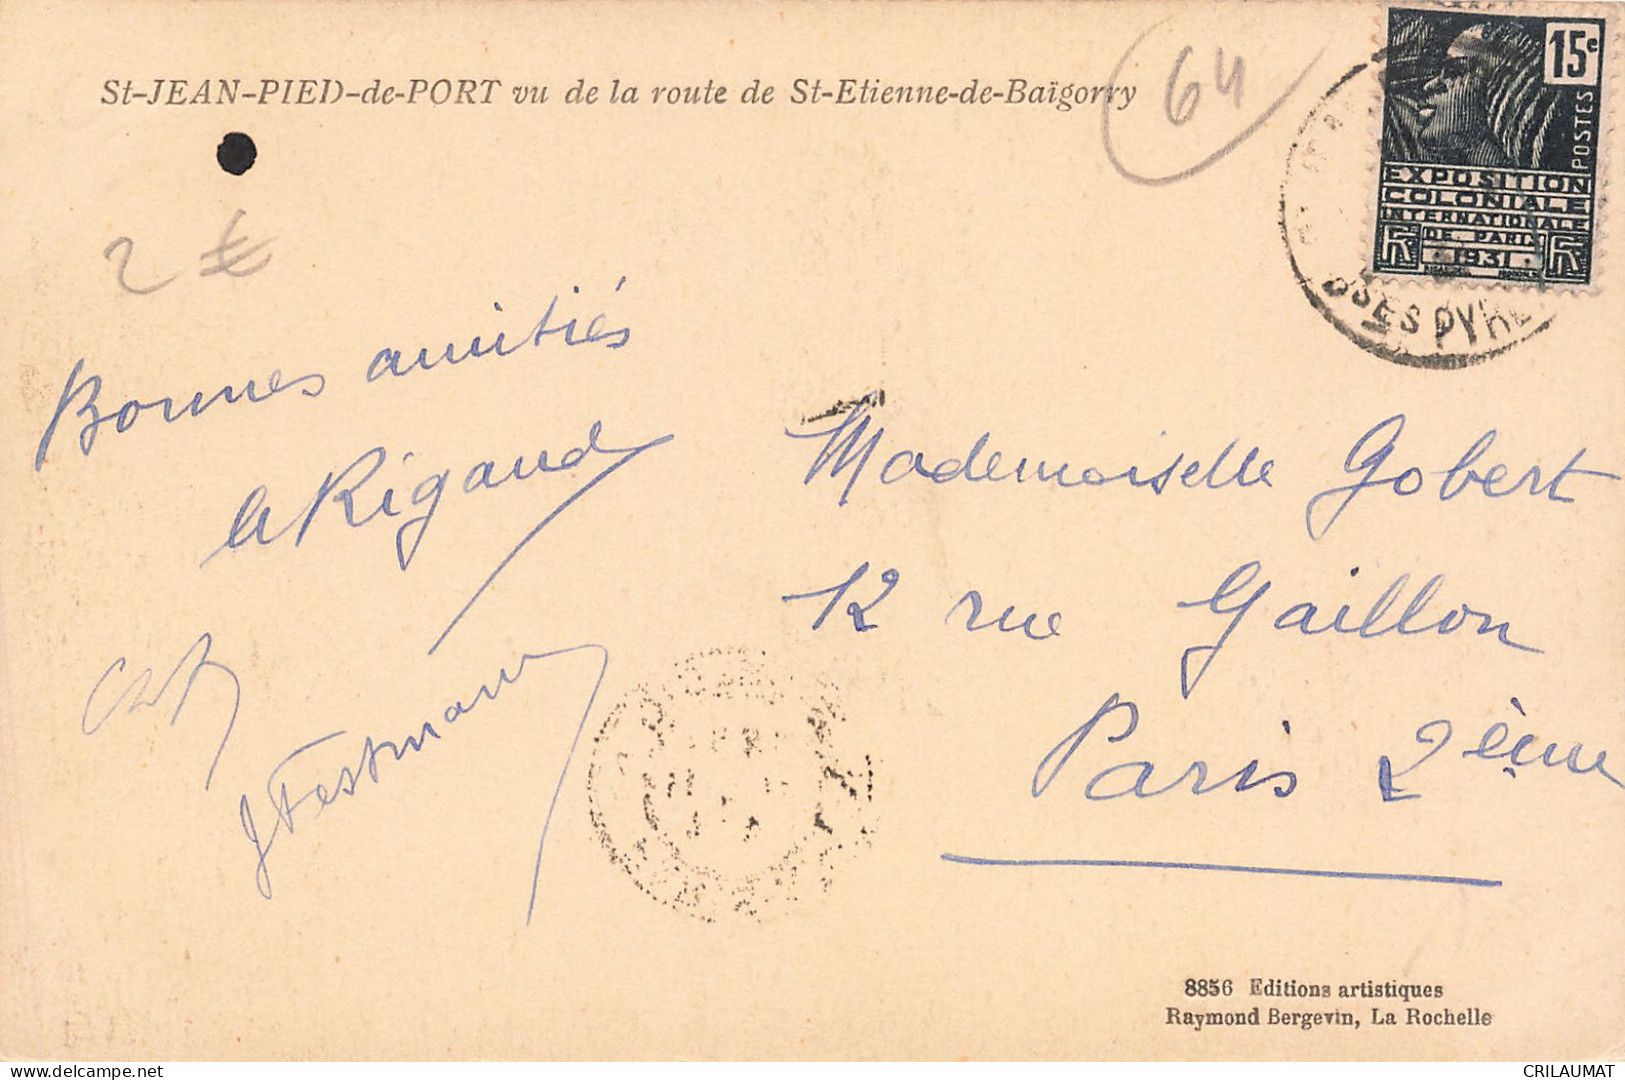 St-JEAN-PIED-de-PORT vu de la route de St-Etienne-de-Baïgorry
64
15c
POSTES
EXPOSITION
COLONIALE
INTERNATIONALE
DE PARIS
1931
RF RF
BSES PYRE
2 €
Bonnes amitiés
Rigaud
Mademoiselle Gobert
12 rue Gaillon
Paris 2ème
8856 Editions artistiques
Raymond Bergevin, La Rochelle
delcampe.net
CRILAUMAT